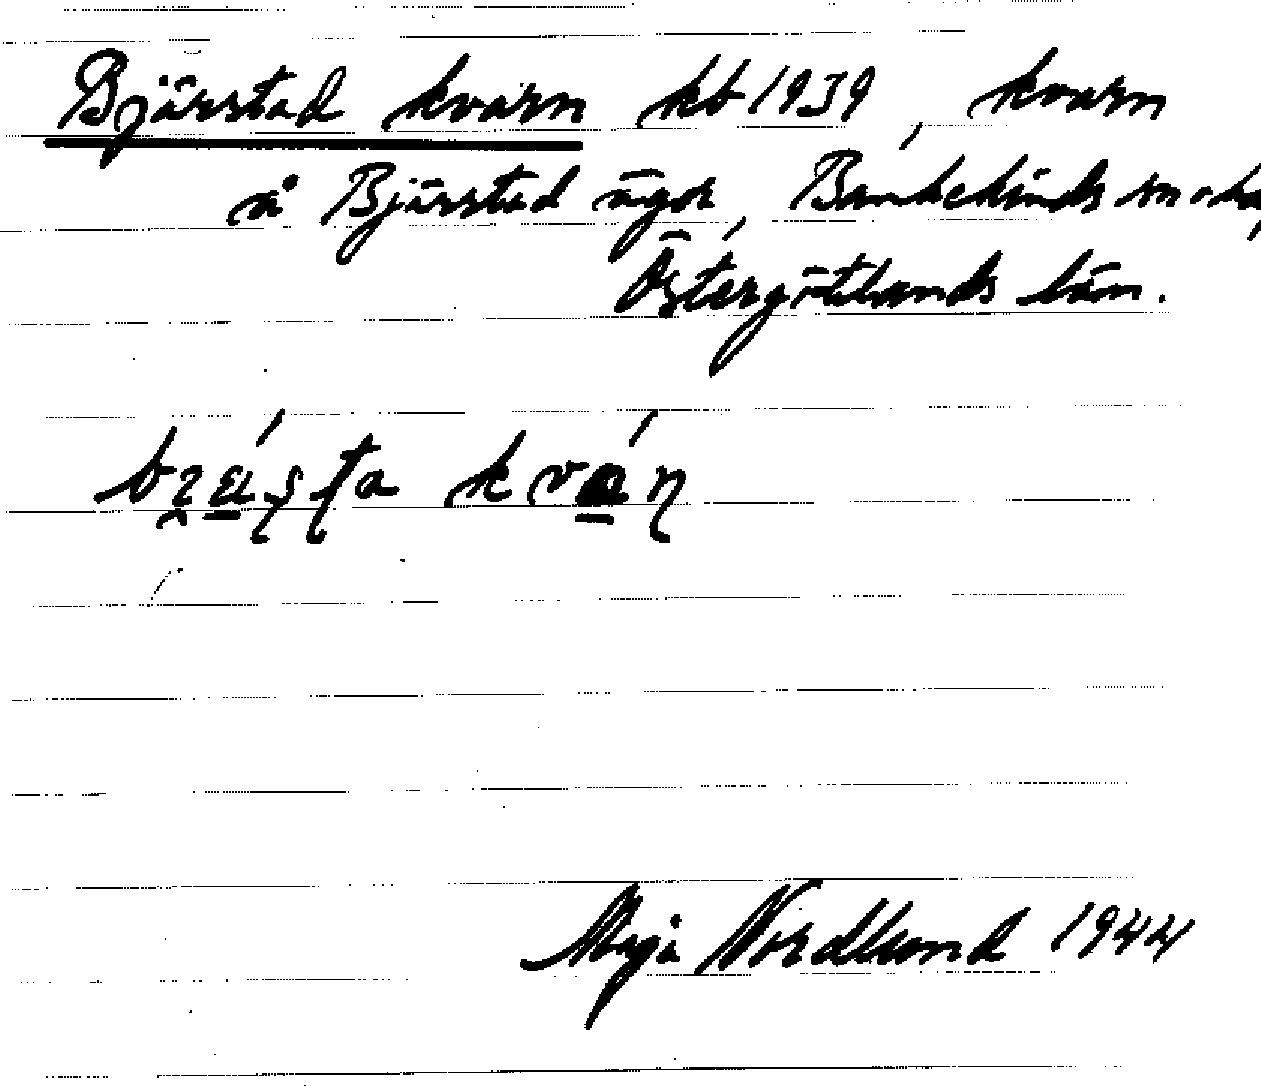 Bjärstad kvarn kb 1939, kvarn
å Bjärstad ägor, Bankekinds sn o hd,
Östergötlands län.
kván
Maja Nordlund 1944